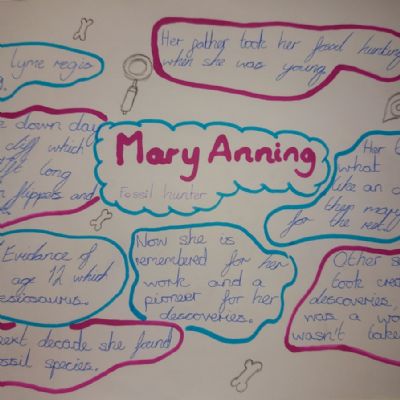 Lyme regis
Her father took her fossil hunting
when she was young.
down day
cliff which
long
flippers and
Mary Anning
Fossil hunter
Her
what
like an
then mary
for the rest
Evidence of
age 12 which
Now she is
remembered for her
work and a
pioneer for her
descoveries.
Other
took
descoveries,
was a
wasn't take
next decade she found
fossil species.